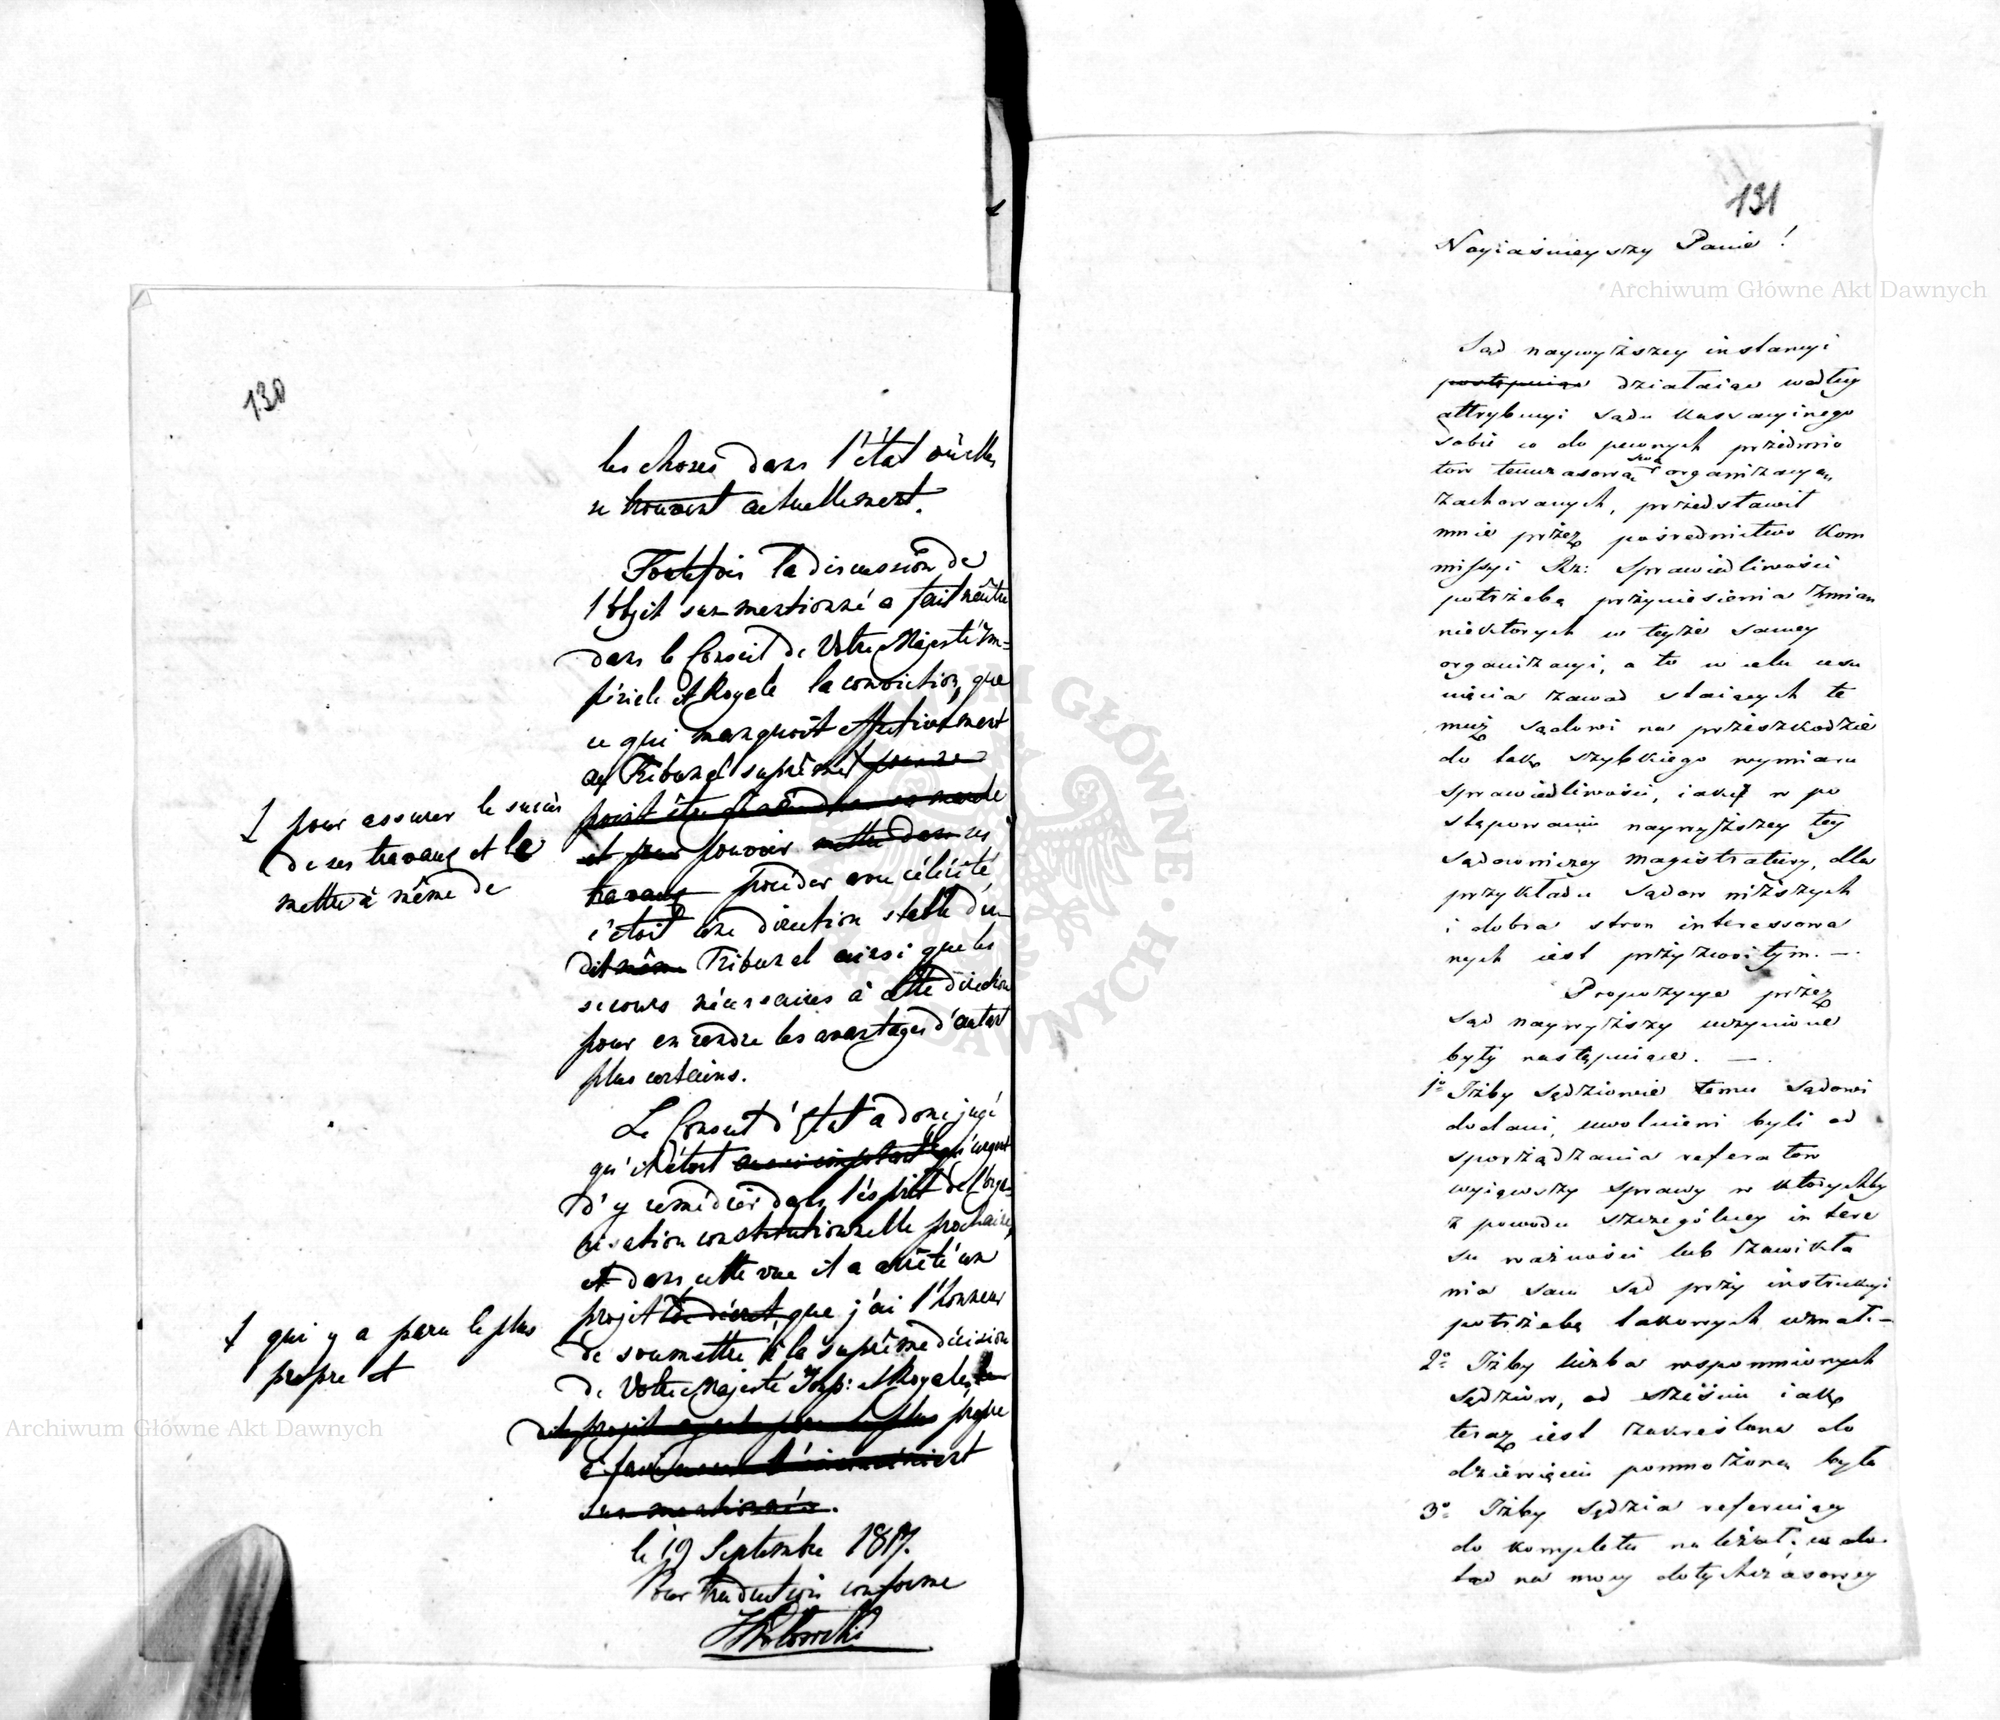 130
les choses dans l'état où elles
se trouvent actuellement.
Toutefois la discussion de
l'objet sus-mentionné a fait naître
dans le Conseil de Votre Majesté Im-
périale et Royale la conviction, que
ce qui manquoit effectivement
au Tribunal suprême pour ne
point être
et pour pouvoir mettre dans ses
travaux procéder avec célérité,
c'étoit une direction stable du-
dit même Tribunal ainsi que les
secours nécessaires à cette direction
pour en rendre les avantages d'autant
plus certains.
Ł pour assurer le succès
de ses travaux et le
mettre à même de
Le Conseil d'Etat a donc jugé
qu'il étoit aussi important qu'urgent
d'y remédier dans l'ésprit de l'orga-
nisation constitutionnelle prochaine,
et dans cette vue il a arrêté un
projet de décret, que j'ai l'honneur
de soumettre à la suprême décision
de Votre Majesté Imp: et Royale,
dit projet ayant paru le plus propre
à
sus mentionnés.
Ł qui y a paru le plus
propre et
le 19 Septembre 1817.
Pour traduction conforme
131
Nayiaśnieyszy Panie!
Sąd naywyższey instancyi
postępuiąc działaiąc według
attrybucyi Sądu Kassacyinego
sobie co do pewnych przedmio
tow tymczasową swą organizacyą
zachowanych, przedstawił
mnie przez pośrednictwo Kom
missyi Rz: Sprawiedliwości
potrzebę przyniesienia zmian
niektorych w teyże samey
organizacyi, a to w celu usu
nięcia zawad staiących te
muż Sądowi na przeszkodzie
do tak szybkiego wymiaru
sprawiedliwości, iaki w po
stępowaniu naywyższey tey
Sądowniczey Magistratury, dla
przykładu Sądow niższych
i dobra stron interessowa
nych iest przyzwoitym. —
Propozycye przez
Sąd naywyższy uczynione
były następuiące. —
1º Iżby Sędziowie temu Sądowi
dodani, uwolnieni byli od
sporządzania referatow
wyiąwszy sprawy w którychby
z powodu szczególney intere
su ważności lub zawikła
nia sam Sąd przy instrukcyi
potrzebę takowych uznał. —
2º Iżby liczba wspomnionych
Sędziow, od sześciu iak
teraz iest zakreślona do
dziewięciu pomnożoną była
3º Iżby Sędzia referuiący
do kompletu należał, co do
tąd na mocy dotychczasowey
Archiwum Główne Akt Dawnych
Archiwum Główne Akt Dawnych